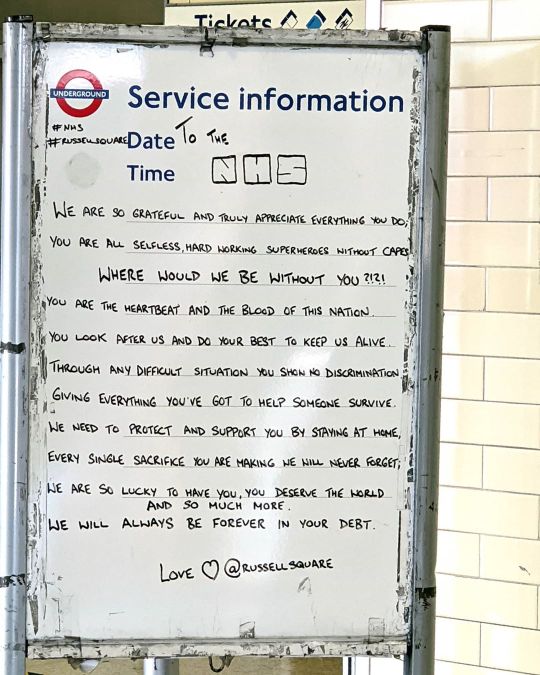 Tickets
UNDERGROUND
Service information
#NHS
#RUSSELLSQUARE
Date TO THE
Time NHS
WE ARE SO GRATEFUL AND TRULY APPRECIATE EVERYTHING YOU DO,
YOU ARE ALL SELFLESS, HARD WORKING SUPERHEROES WITHOUT CAPES
WHERE WOULD WE BE WITHOUT YOU ?!?!
YOU ARE THE HEARTBEAT AND THE BLOOD OF THIS NATION.
YOU LOOK AFTER US AND DO YOUR BEST TO KEEP US ALIVE.
THROUGH ANY DIFFICULT SITUATION YOU SHOW NO DISCRIMINATION
GIVING EVERYTHING YOU'VE GOT TO HELP SOMEONE SURVIVE.
WE NEED TO PROTECT AND SUPPORT YOU BY STAYING AT HOME,
EVERY SINGLE SACRIFICE YOU ARE MAKING WE WILL NEVER FORGET,
WE ARE SO LUCKY TO HAVE YOU, YOU DESERVE THE WORLD
AND SO MUCH MORE.
WE WILL ALWAYS BE FOREVER IN YOUR DEBT.
LOVE ♡ @RUSSELLSQUARE